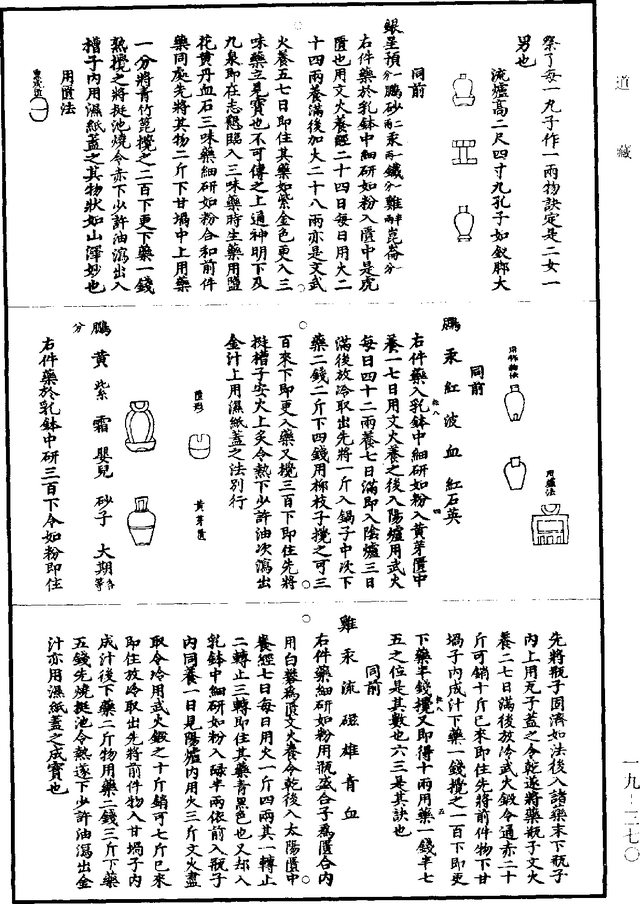 道藏
祭了每一丸子作一兩物訣定是二女一
男也
流爐高二尺四寸九孔子如釵脚大
同前
右件藥於乳鉢中細研如粉入匱中是虎
匱也用文火養經二十四日每日用火二
十四兩養滿後加火二十八兩亦是文武
火養五七日即住其藥如紫金色更入三
味藥立見寶也不可傳之上通神明下及
九泉即在志懇臨入三味藥時生藥用鹽
花黃丹血石三味藥細研如粉合和前件
藥同處先將其物二斤下甘堝中上用藥
一分將青竹篦攪之二百下更下藥一錢
熟攪之將挺池燒令赤下少許油瀉出入
槽子內用濕紙蓋之其物狀如山澤妙也
用匱法
用爐法
同前
鵬汞紅波血紅石英
右件藥入乳鉢中細研如粉入黃芽匱中
養一七日用文火養之後入陽爐用武火
每日四十二兩養七日滿即入陰爐三日
滿後放冷取出先將一斤入鍋子中次下
藥二錢二斤下四錢用柳枝子攪之可三
百來下即更入藥又攪三百下即住先將
挺槽子安火上炙令熱下少許油次瀉出
金汁上用濕紙蓋之法別行
匱形
黃芽匱
鵬黃紫霜嬰兒砂子大期各等
分
右件藥於乳鉢中研三百下令如粉即住
先將瓶子固濟如法後入諸藥末下瓶子
內上用瓦子蓋之令乾遂將藥瓶子文火
養二七日滿後放冷武火鍛令通赤二十
斤可銷十斤已來即住先將前件物下甘
堝子內成汁下藥一錢攪之一百下即更
下藥半錢攪又即得十兩用藥一錢半七
五之位是其數也六三是其訣也
同前
雞汞流磁雄青血
右件藥細研如粉用瓶盛合子為匱合內
用白礬為匱文火養令乾後入太陽匱中
養經七日每日用火一斤四兩其一轉止
二轉止三轉即住其藥青黑色也又却入
乳鉢中細研如粉入硇半兩依前入瓶子
內同養一日見陽爐內用火三斤文火盡
取令冷用武火鍛之十斤銷可七斤已來
即住放冷取出先將前件物入甘堝子內
成汁後下藥二斤物用藥二錢三斤下藥
五錢先燒挺池令熱遂下少許油瀉出金
汁亦用濕紙蓋之成寶也
一九-三七〇